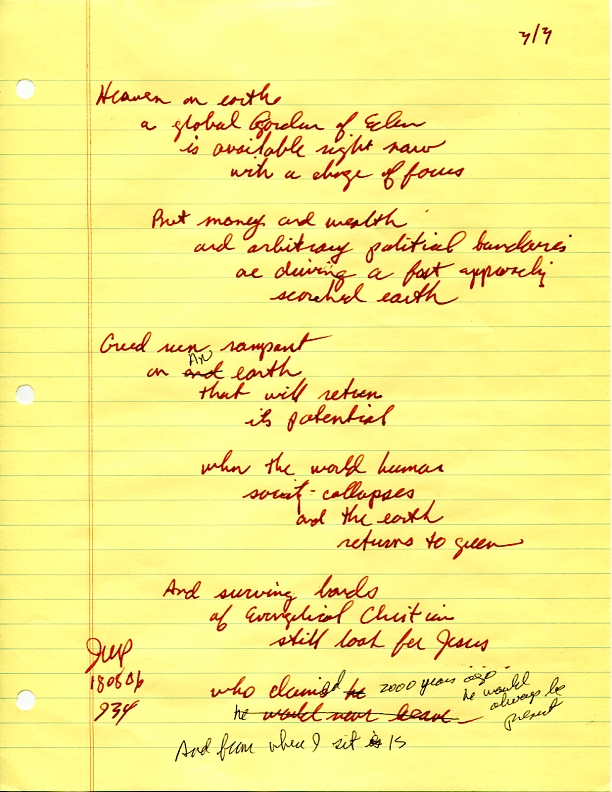 7/7
Heaven on earth
a global Garden of Eden
is available right now
with a change of focus
But money and wealth
and arbitrary political boundaries
are driving a fast approaching
scorched earth
Greed run rampant
on and AN earth
that will return
its potential
when the world human
society collapses
and the earth
returns to green
And surviving bands
of Evangelical Christian
still look for Jesus
who claimed he 2000 years ago
he would never leave he would
always be
present
And from where I sit is IS
180806
934